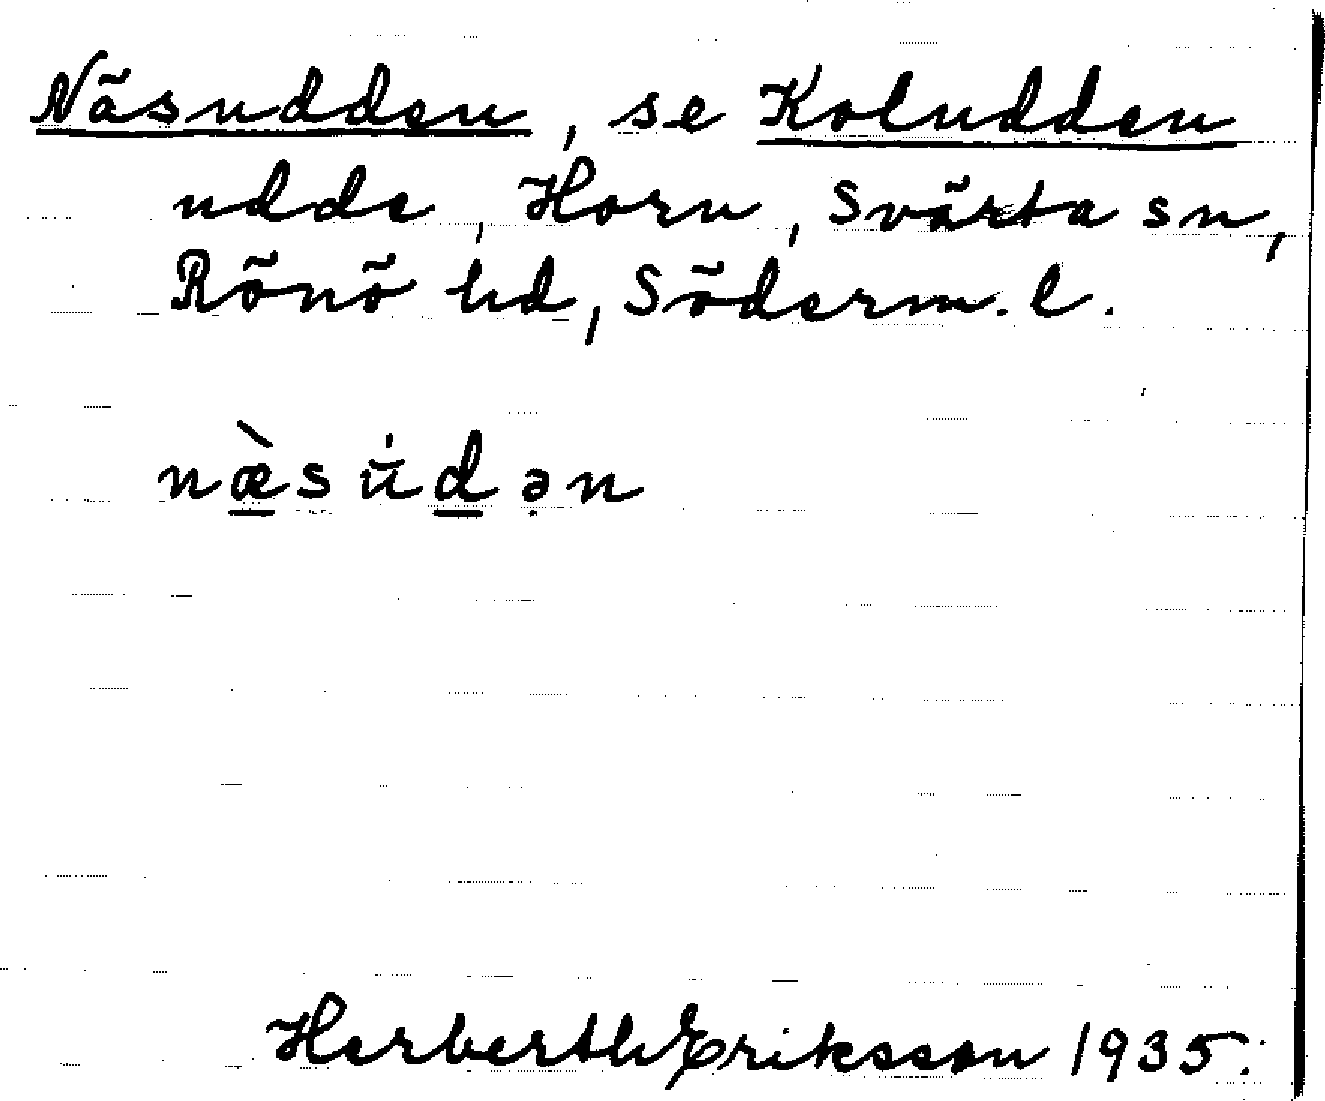 Näsudden, se Koludden
udde, Horn, Svärta sn,
Rönö hd, Söderm. l.
næ̀sŭ́dən
Herberth Eriksson 1935.